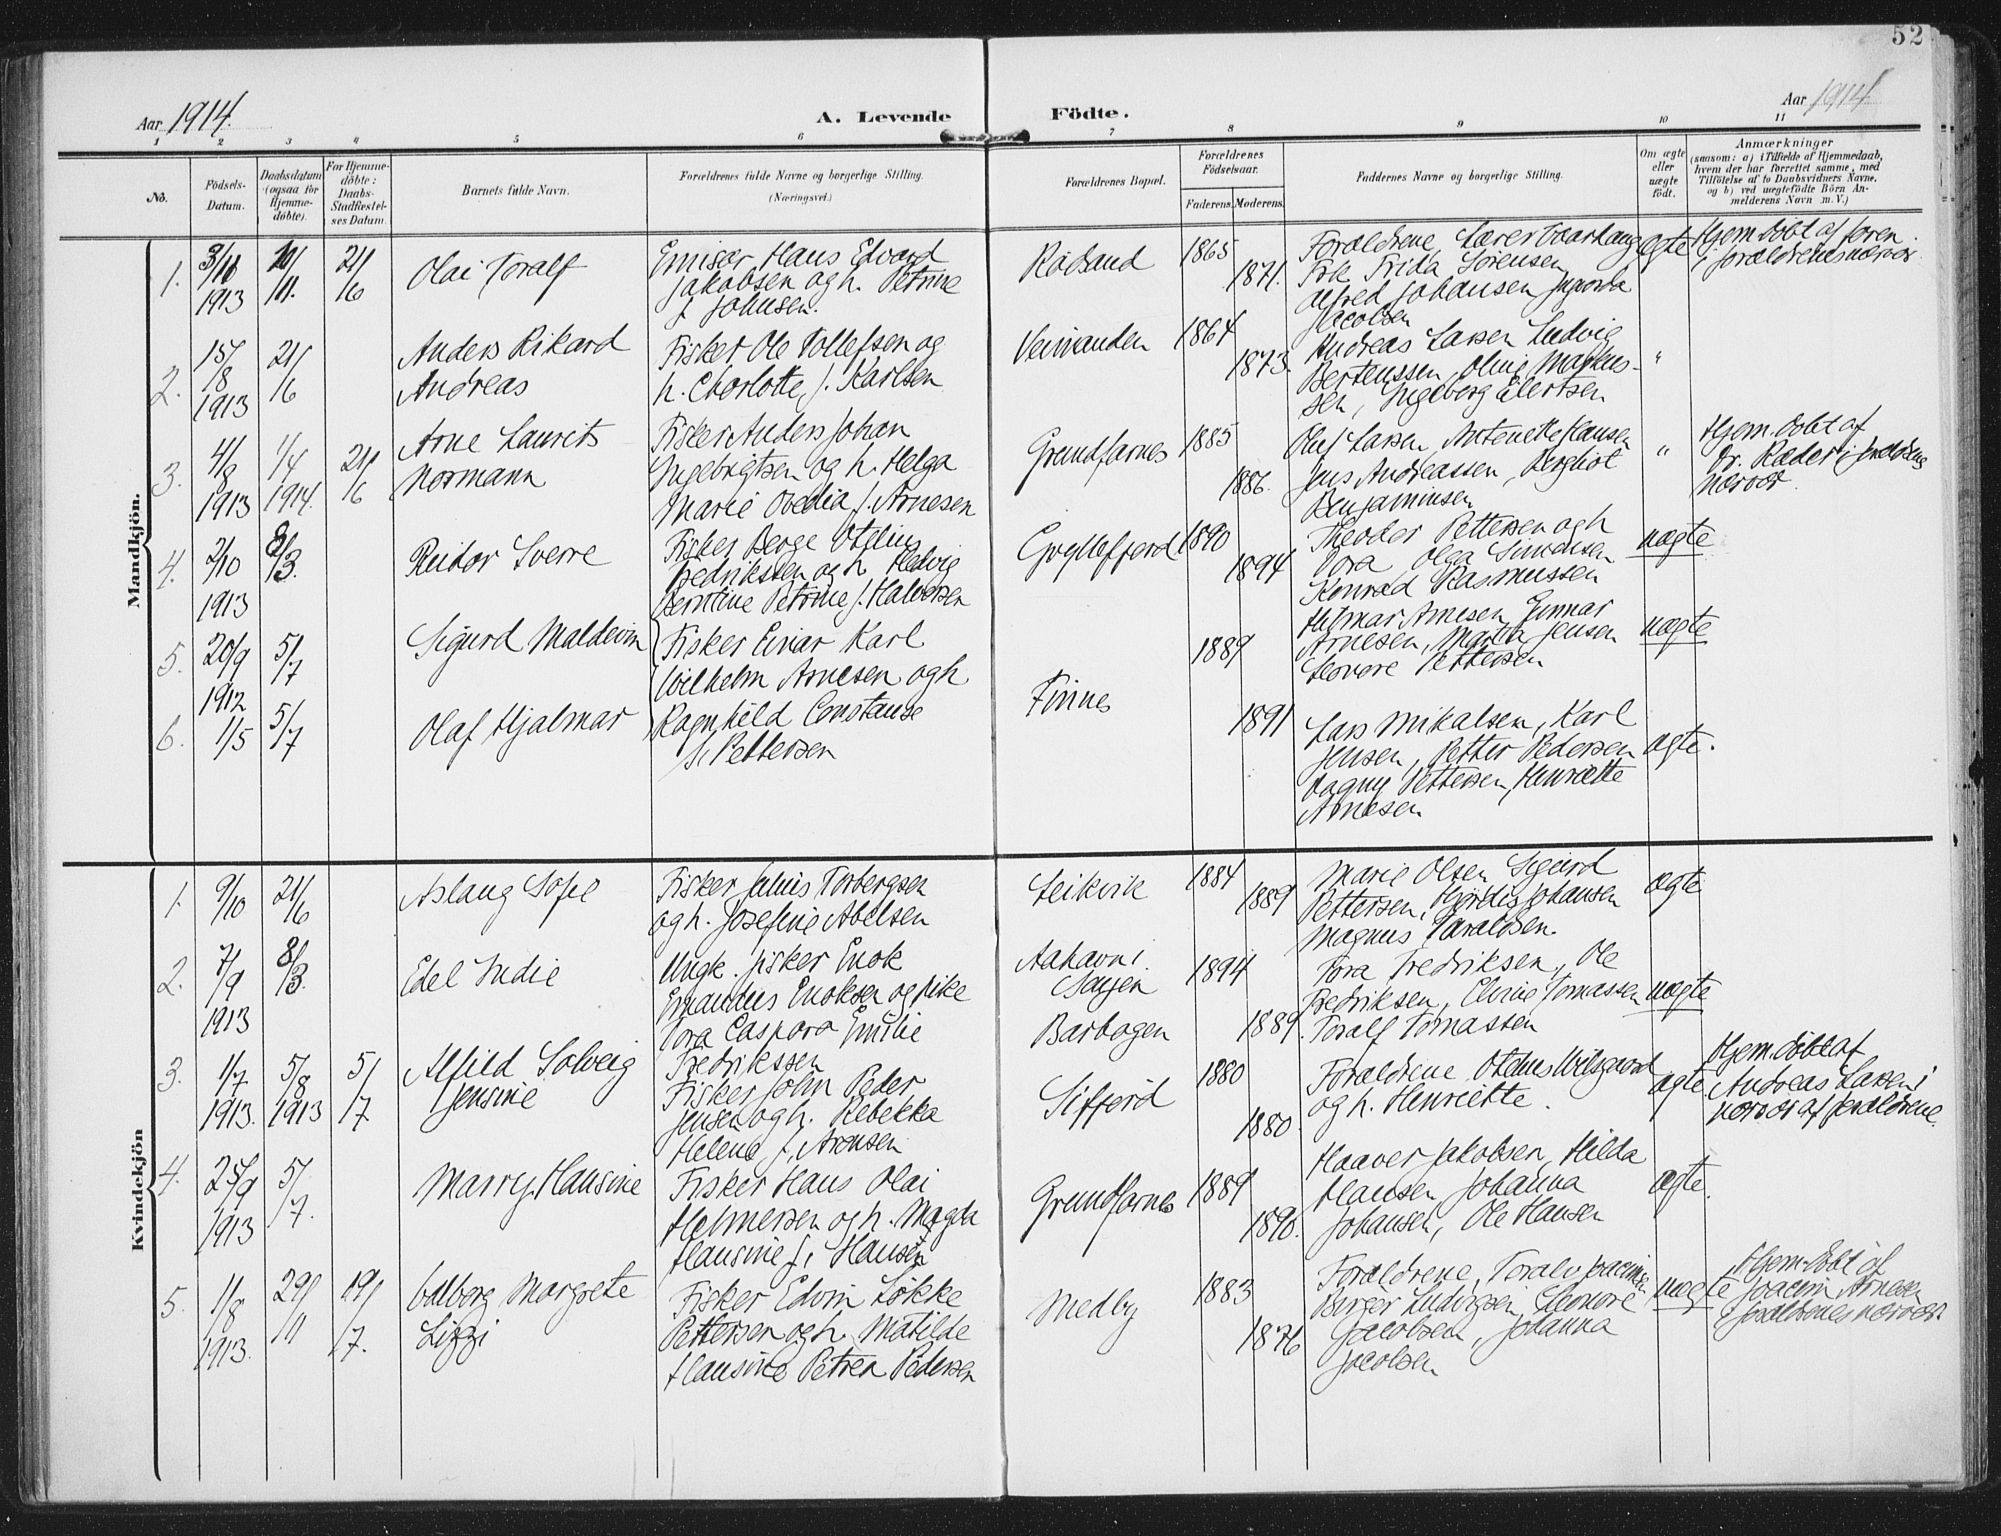 52
Aar 1914.
A. Levende
Födte.
Aar 1914
1 2 3 4 5 6 7 8 9 10 11
No.
Födsels-Datum.
Daabsdatum (ogsaa for Hjemme-döbte).
For Hjemme-döbte: Daabs-Stadfæstel-ses Datum.
Barnets fulde Navn.
Forældrenes fulde Navne og borgerlige Stilling.
(Næringsvei.)
Forældrenes Bopæl.
Forældrenes Födselsaar.
Faderens. Moderens.
Faddernes Navne og borgerlige Stilling.
Om ægte eller uægte födt.
Anmærkninger
(saasom: a) i Tilfælde af Hjemmedaab,
hvem der har forrettet samme, med
Tilföielse af to Daabsvidners Navne,
og b) ved uægtefödte Börn An-
melderens Navn m. V.)
Mandkjön.
1. 3/10 1913 21/6
Olai Toralf
Hans Edvard
Jakobsen og h. Petrine
f. Johnsen.
Rödsand 1865 1871.
Forældrene, Lærer
Frk Frida Sörensen
Alfred Johansen
Jacobsen
ægte
Hjem. döbt af
i forældrenes nærvær
2. 15/8 1913 21/6
Anders Rikard
Andreas
Fisker Ole Tollefsen og
h. Charlotte, f. Karlsen
1864 1873.
Andreas Larsen Ludvig
Berteussen, Oline Markus-
sen, Ingeborg Eilertsen
"
3. 4/8 1913 1/4 1914. 21/6
Arne Laurits
Normann
Fisker Anders Johan
Ingebrigtsen og h. Helga
Marie Ovedia f. Arnesen
Grundfarnes 1885 1886.
Oluf Larsen, Antonette Hansen
Jens Andreassen, Bergliot
Benjaminsen
"
Hjem. döbt af
Dr. Ræder i forældrenes
nærvær.
4. 2/10 1913 8/3.
Reidar Sverre
Fisker Berge Otelius
Fredrikssen og h. Hedvig
Berntine Petrine f. Halvorsen
Gryllefjord 1890 1894
Theodor Pettersen og h
Tora Olga Simonsen
Konrad Rasmussen
uægte
5. 20/9 1912 5/7
Sigurd Maldevin
Fisker Einar Karl
Wilhelm Arnesen og h
1889
Hilmar Arnesen, Gunnar
Arnesen, Marta Jensen
Pettersen
uægte
6. 1/5 5/7
Olaf Hjalmar
Ragnhild Constanse
f. Pettersen
Finnes 1891
Lars Mikalsen, Karl
Jensen, Petter Pedersen
Dagny Pettersen, Henriette
Arnesen
ægte.
Kvindekjön
1. 9/10 21/6
Aslaug Sofie
Fisker Julius Torbergsen
og h. Josefine Abelsen
Leikvik 1884 1889
Marie Olsen Sigurd
Pettersen, Hjördis Johansen
Magnus Taraldsen.
ægte
2. 7/9 1913 8/3.
Edel Indie
Ungk. fisker Enok
Emandus Enoksen og pike
Tora Caspara Emilie
Fredrikssen
Aahavn i
Barbogen 1894 1889.
Tora Fredriksen, Ole
Fredriksen, Tomassen
Toralf Tomassen
uægte
3. 1/7 1913. 5/8 1913 5/7
Alfild Solveig
Jensine
Fisker John Peder
Jensen og h. Rebekka
Helena f. Arensen
Sifjord 1880 1880.
Forældrene
og h. Henriette.
ægte.
Hjem. döbt af
Andreas Larsen i
nærvær af forældrene.
4. 25/9 1913 5/7.
Marry Hansine
Fisker Hans Olai
Helmersen og h. Magda
Hansine f. Hansen
Grundfarnes 1889 1890.
Haaver Jakobsen, Hilda
Hansen Johanna
Johansen, Ole Hansen
ægte.
5. 1/8 1913. 29/11 19/7.
Valborg Margrete
Lizzi
Fisker Edvin Lökke
Pettersen og h. Matilde
Hansine Petrea Pedersen
Medby 1883 1876
Forældrene, Toralv
Birger Ludvigsen, Eleonore
Jacobsen, Johanna
Jacobsen
uægte
Hjem. döbt af
Joacim Arnesen
i forældrenes nærvær.